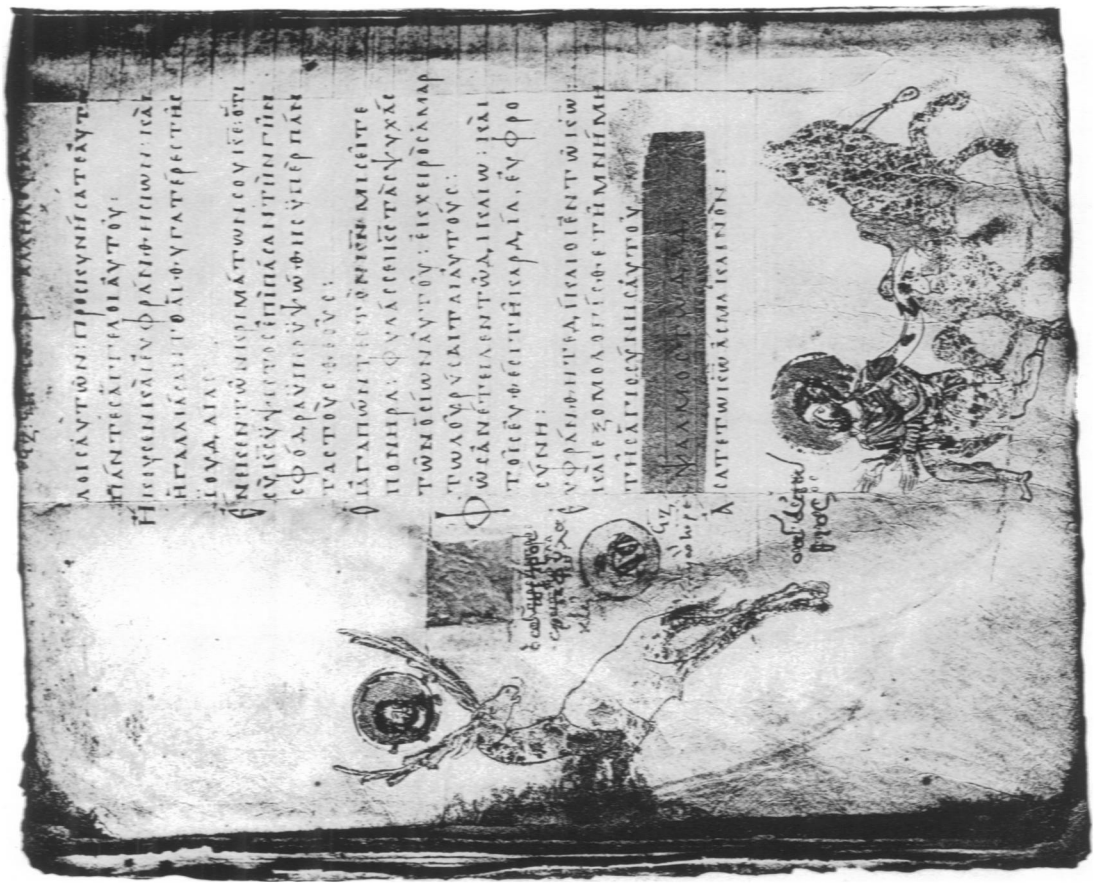 ΛΟΙΣ ΑΥΤΩΝ: ΠΡΟΣΚΥΝΗΣΑΤΕ ΑΥΤΩ
ΠΑΝΤΕΣ ΑΓΓΕΛΟΙ ΑΥΤΟΥ:
ΗΚΟΥΣΕΝ ΚΑΙ ΕΥΦΡΑΝΘΗ Η ΣΙΩΝ: ΚΑΙ
ΗΓΑΛΛΙΑΣΑΝΤΟ ΑΙ ΘΥΓΑΤΕΡΕΣ ΤΗΣ
ΙΟΥΔΑΙΑΣ:
ΕΝΕΚΕΝ ΤΩΝ ΚΡΙΜΑΤΩΝ ΣΟΥ ΚΕ: ΟΤΙ
ΣΥ ΚΣ ΥΨΙΣΤΟΣ ΕΠΙ ΠΑΣΑΝ ΤΗΝ ΓΗΝ
ΣΦΟΔΡΑ ΥΠΕΡΥΨΩΘΗΣ ΥΠΕΡ ΠΑΝ
ΤΑΣ ΤΟΥΣ ΘΕΟΥΣ:
ΟΙ ΑΓΑΠΩΝΤΕΣ ΤΟΝ ΚΝ ΜΙΣΕΙΤΕ
ΠΟΝΗΡΑ: ΦΥΛΑΣΣΕΙ ΚΣ ΤΑΣ ΨΥΧΑΣ
ΤΩΝ ΟΣΙΩΝ ΑΥΤΟΥ: ΕΚ ΧΕΙΡΟΣ ΑΜΑΡ
ΤΩΛΟΥ ΡΥΣΕΤΑΙ ΑΥΤΟΥΣ:
ΦΩΣ ΑΝΕΤΕΙΛΕΝ ΤΩ ΔΙΚΑΙΩ: ΚΑΙ
ΤΟΙΣ ΕΥΘΕΣΙ ΤΗ ΚΑΡΔΙΑ, ΕΥΦΡΟ
ΣΥΝΗ:
ΕΥΦΡΑΝΘΗΤΕ ΔΙΚΑΙΟΙ ΕΝ ΤΩ ΚΩ:
ΚΑΙ ΕΞΟΜΟΛΟΓΕΙΣΘΕ ΤΗ ΜΝΗΜΗ
ΤΗΣ ΑΓΙΟΣΥΝΗΣ ΑΥΤΟΥ
ΨΑΛΜΟΣ
ΑΣΑΤΕ ΤΩ ΚΩ ΑΣΜΑ ΚΑΙΝΟΝ: